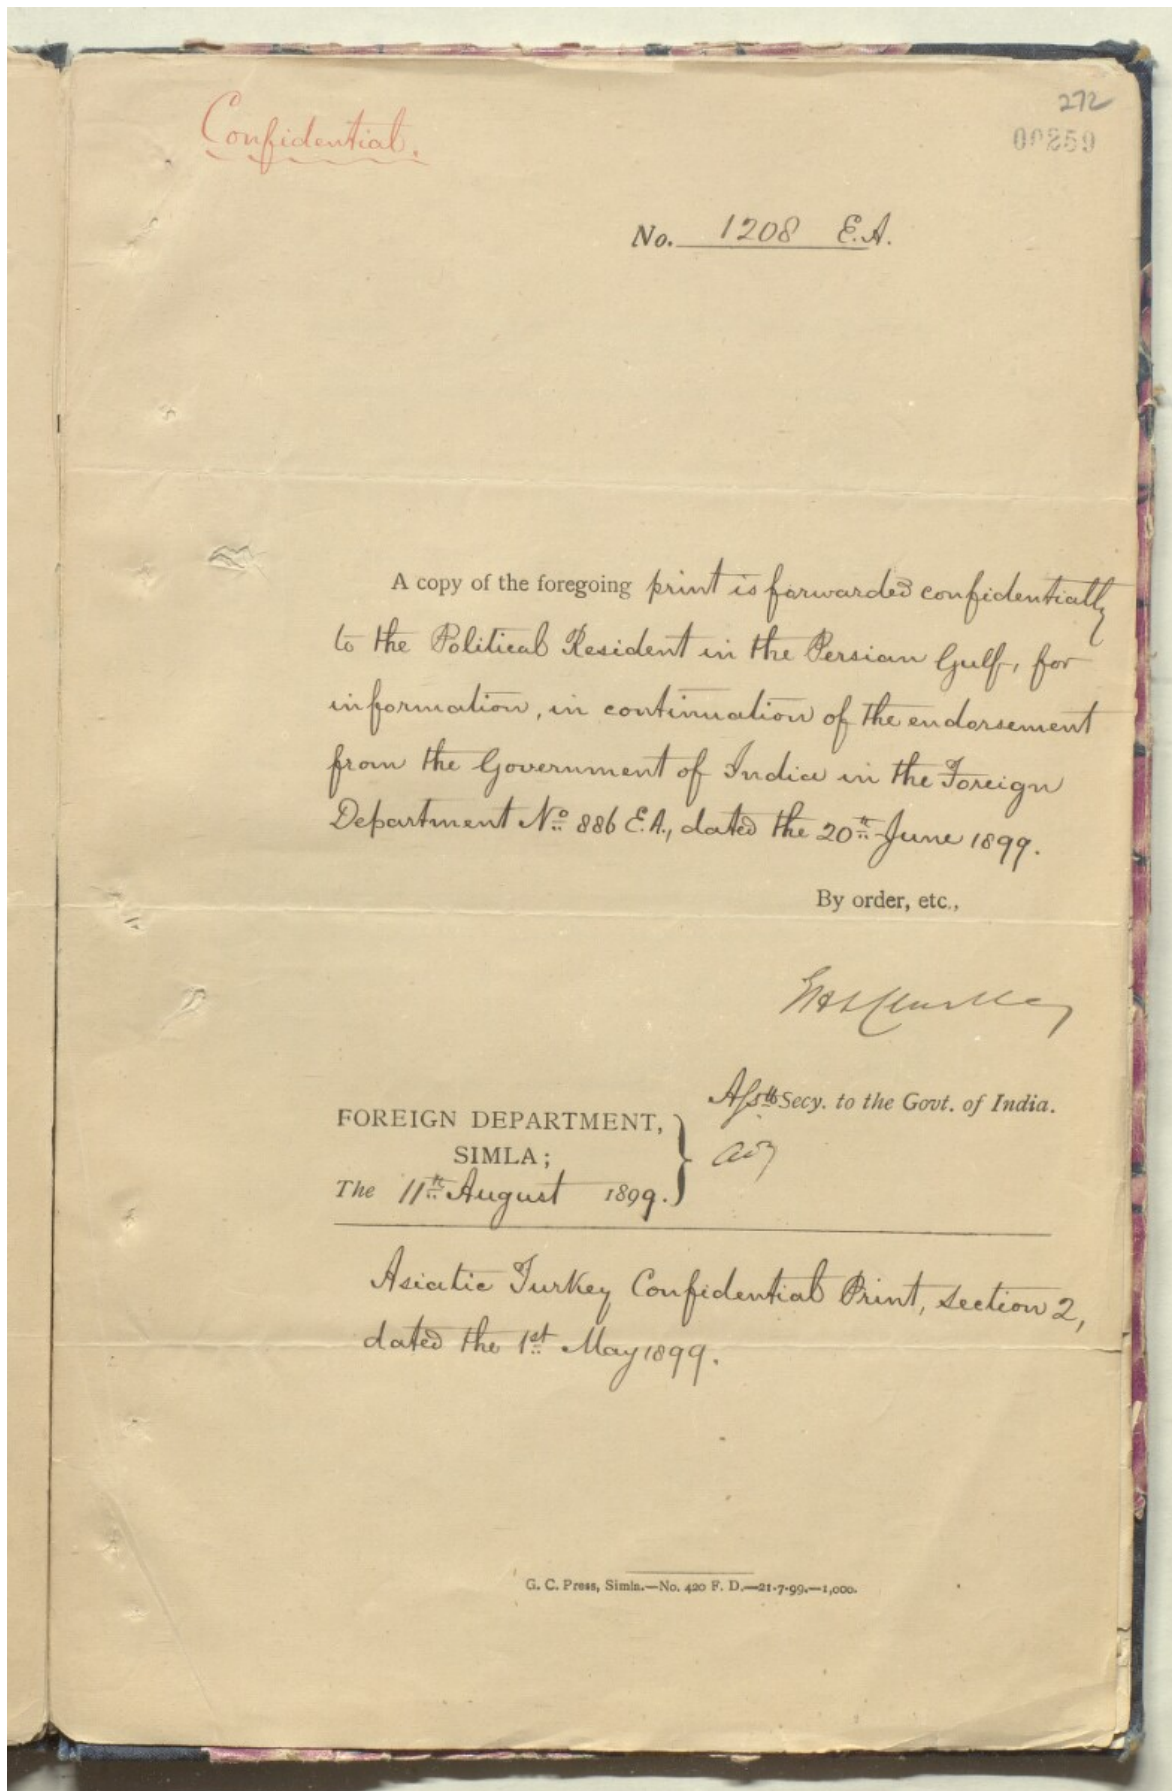 Confidential.
272
00259
No. 1208 E.A.
A copy of the foregoing print is forwarded confidentially
to the Political Resident in the Persian Gulf, for
information, in continuation of the endorsement
from the Government of India in the Foreign
Department Nº 886 E.A., dated the 20th June 1899.
By order, etc.,
Asstt Secy. to the Govt. of India.
FOREIGN DEPARTMENT,
SIMLA;
The 11th August 1899.
Asiatic Turkey Confidential Print, section 2,
dated the 1st May 1899.
G. C. Press, Simla.—No. 420 F. D.—21-7-99.—1,000.